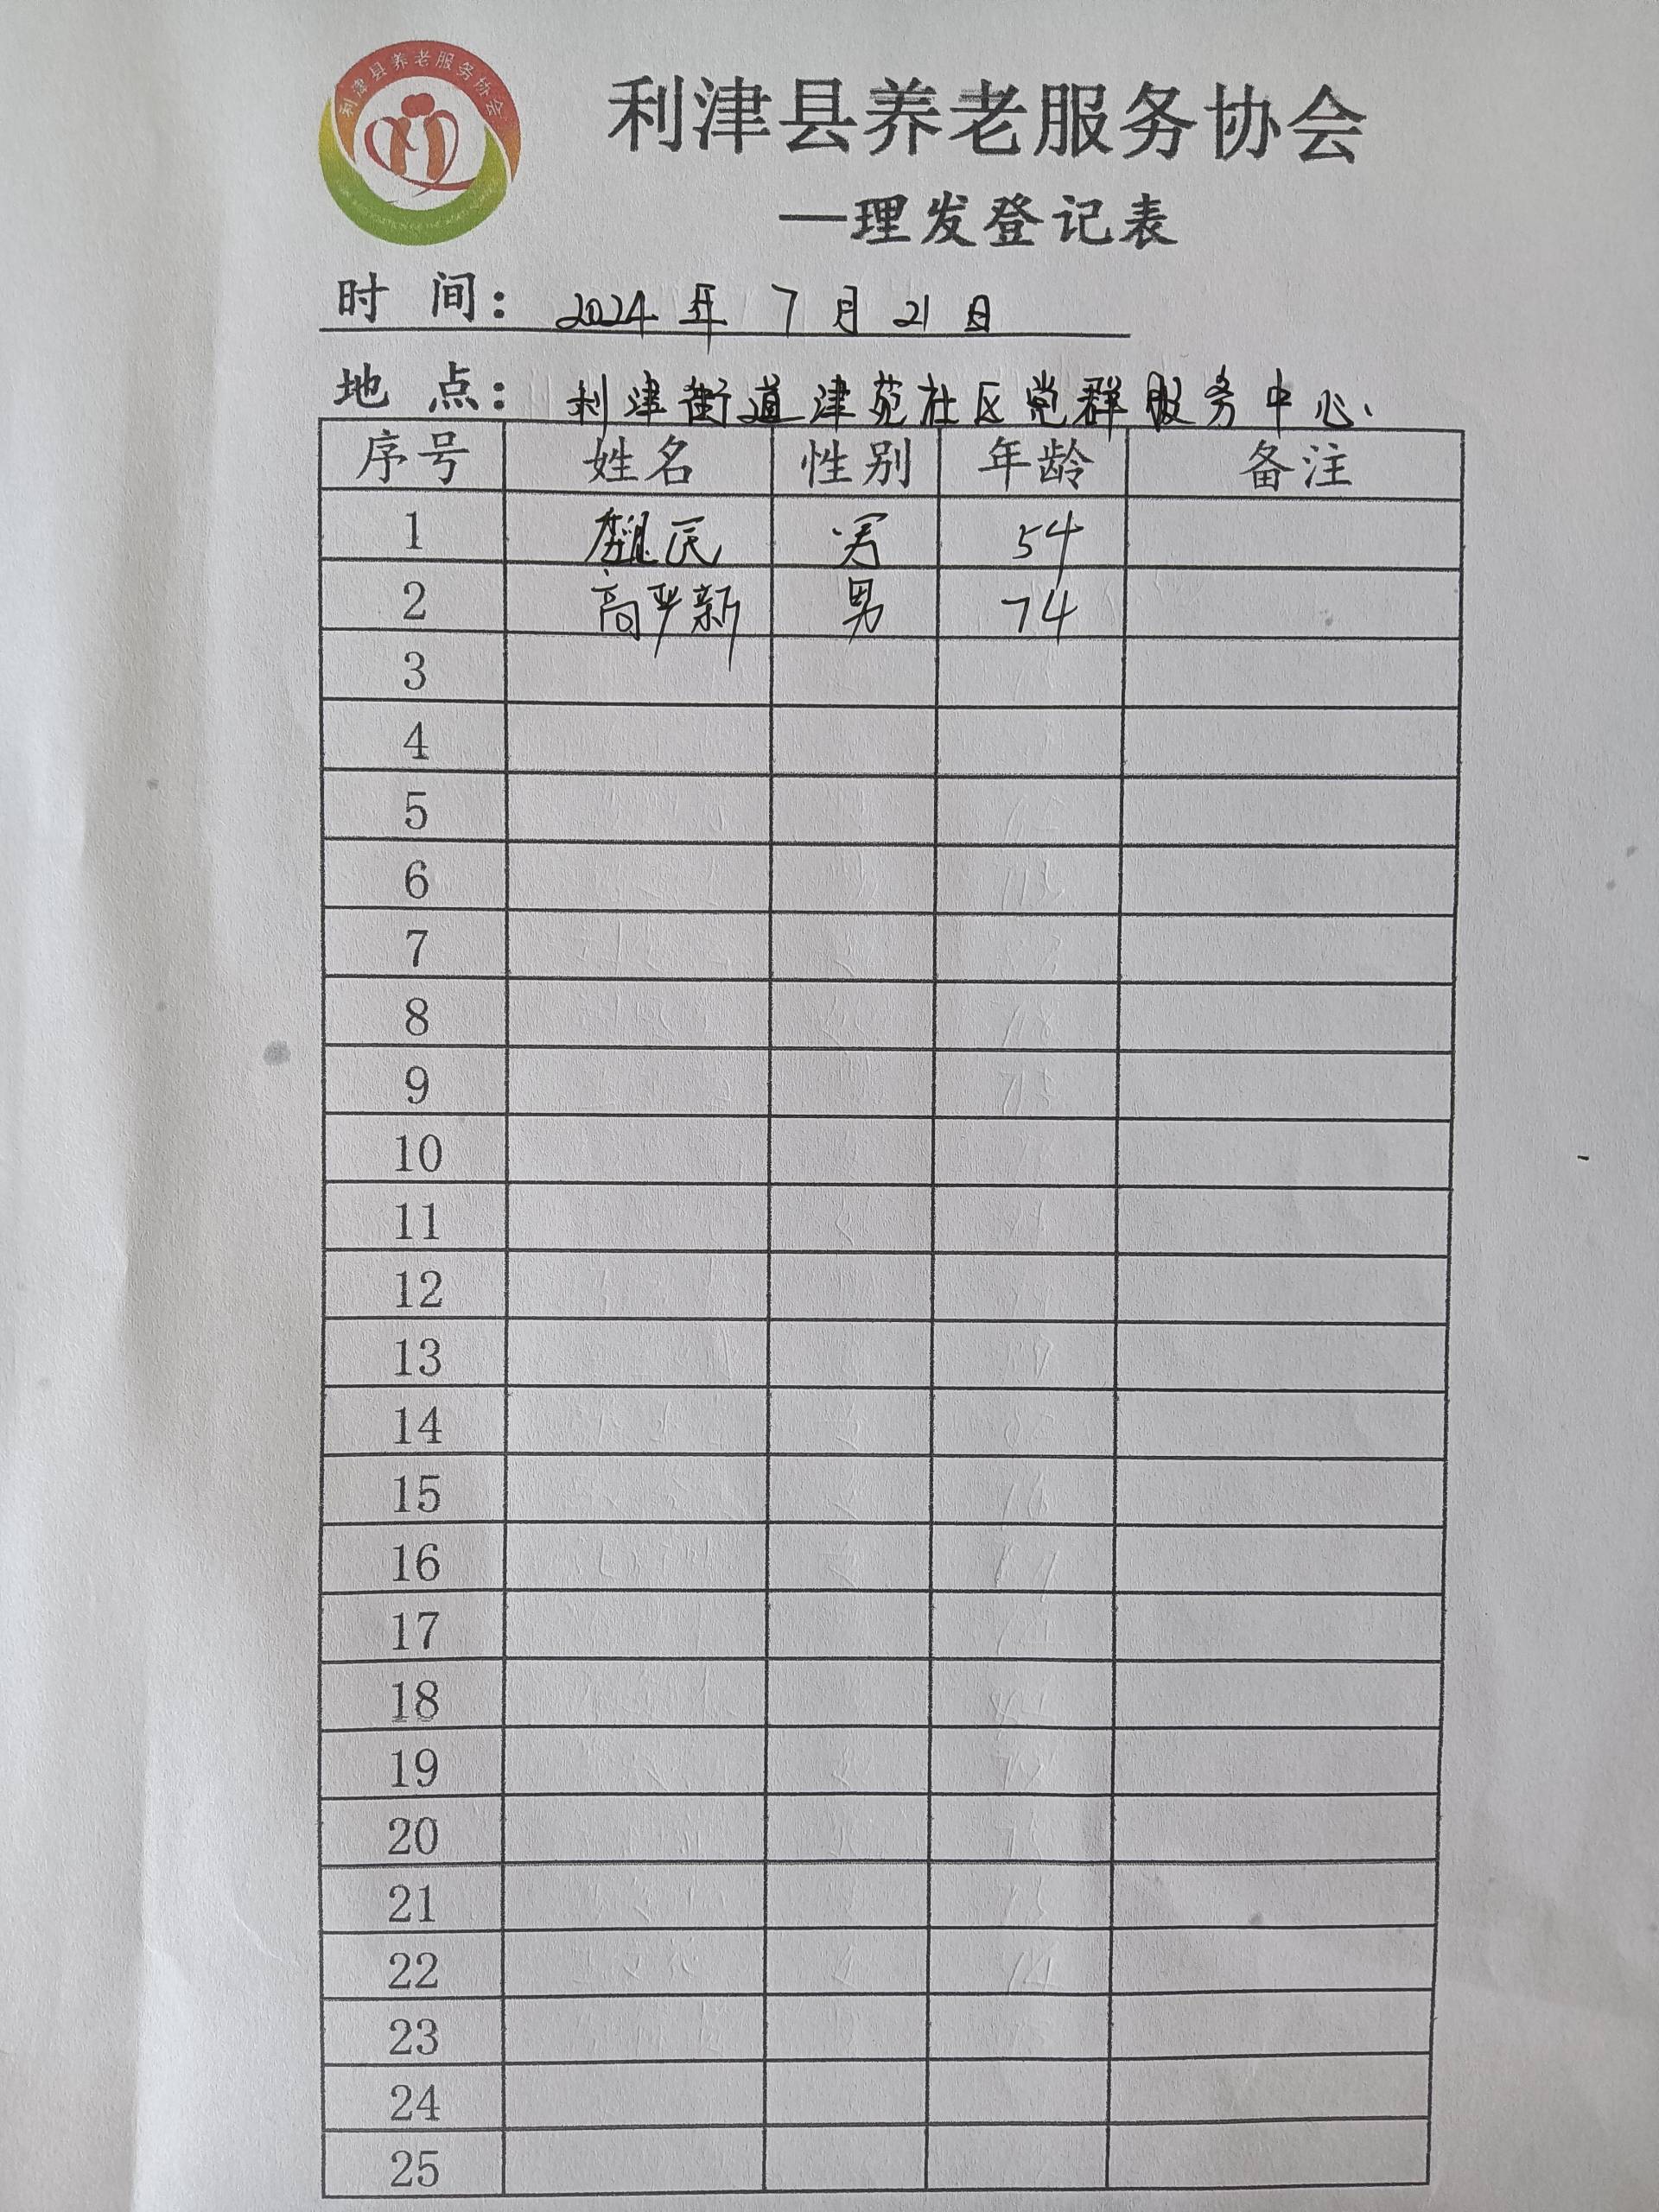 利津县养老服务协会
利津县养老服务协会
—理发登记表
时 间： 2024 年 7 月 21 日
地 点： 利津街道津苑社区党群服务中心.
序号 姓名 性别 年龄 备注
1 民 男 54
2 高严新 男 74
3
4
5
6
7
8
9
10
11
12
13
14
15
16
17
18
19
20
21
22
23
24
25